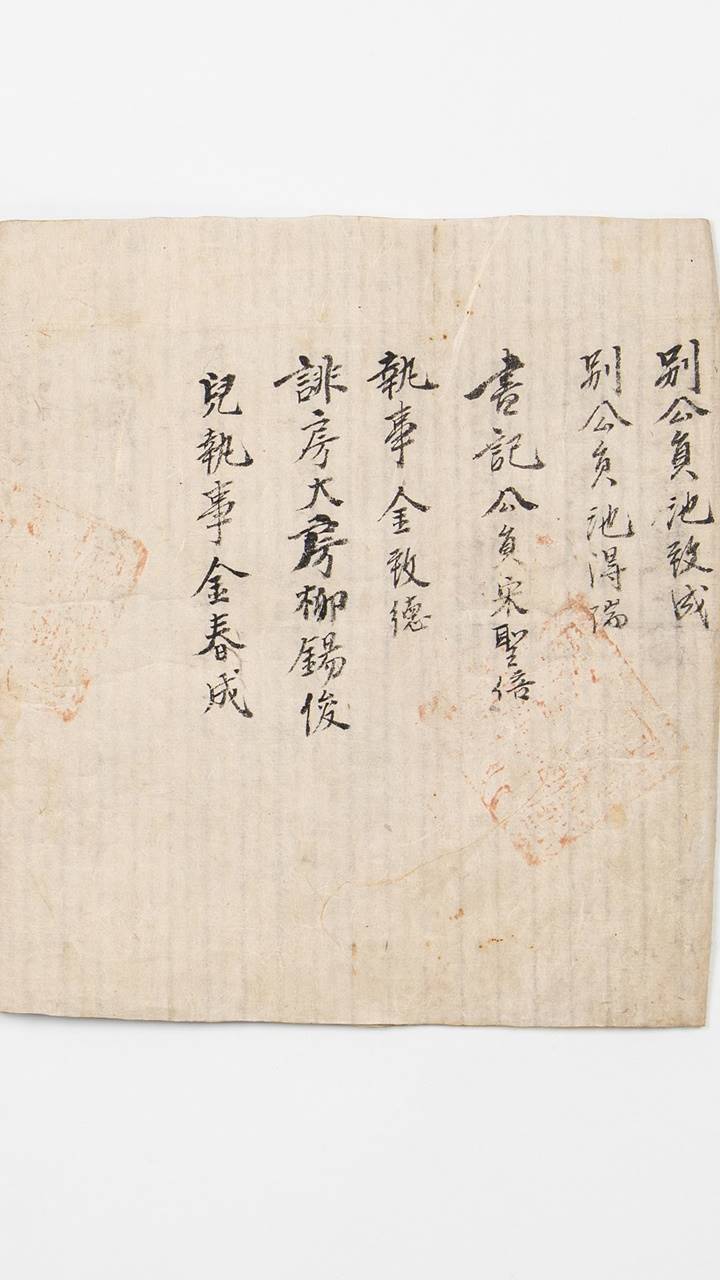 別公員池致成
別公員池得瑞
書記公員宋聖倍
執事金致德
誹房大房柳錫俊
兒執事金春成